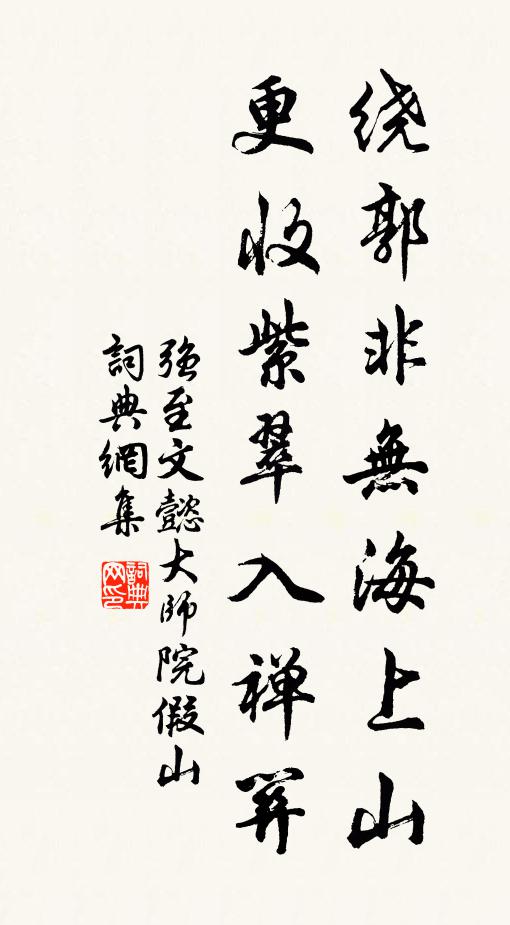 绕郭非無海上山
更收紫翠入禅關
强至文懿大師院假山
詞典網集
詞典网印